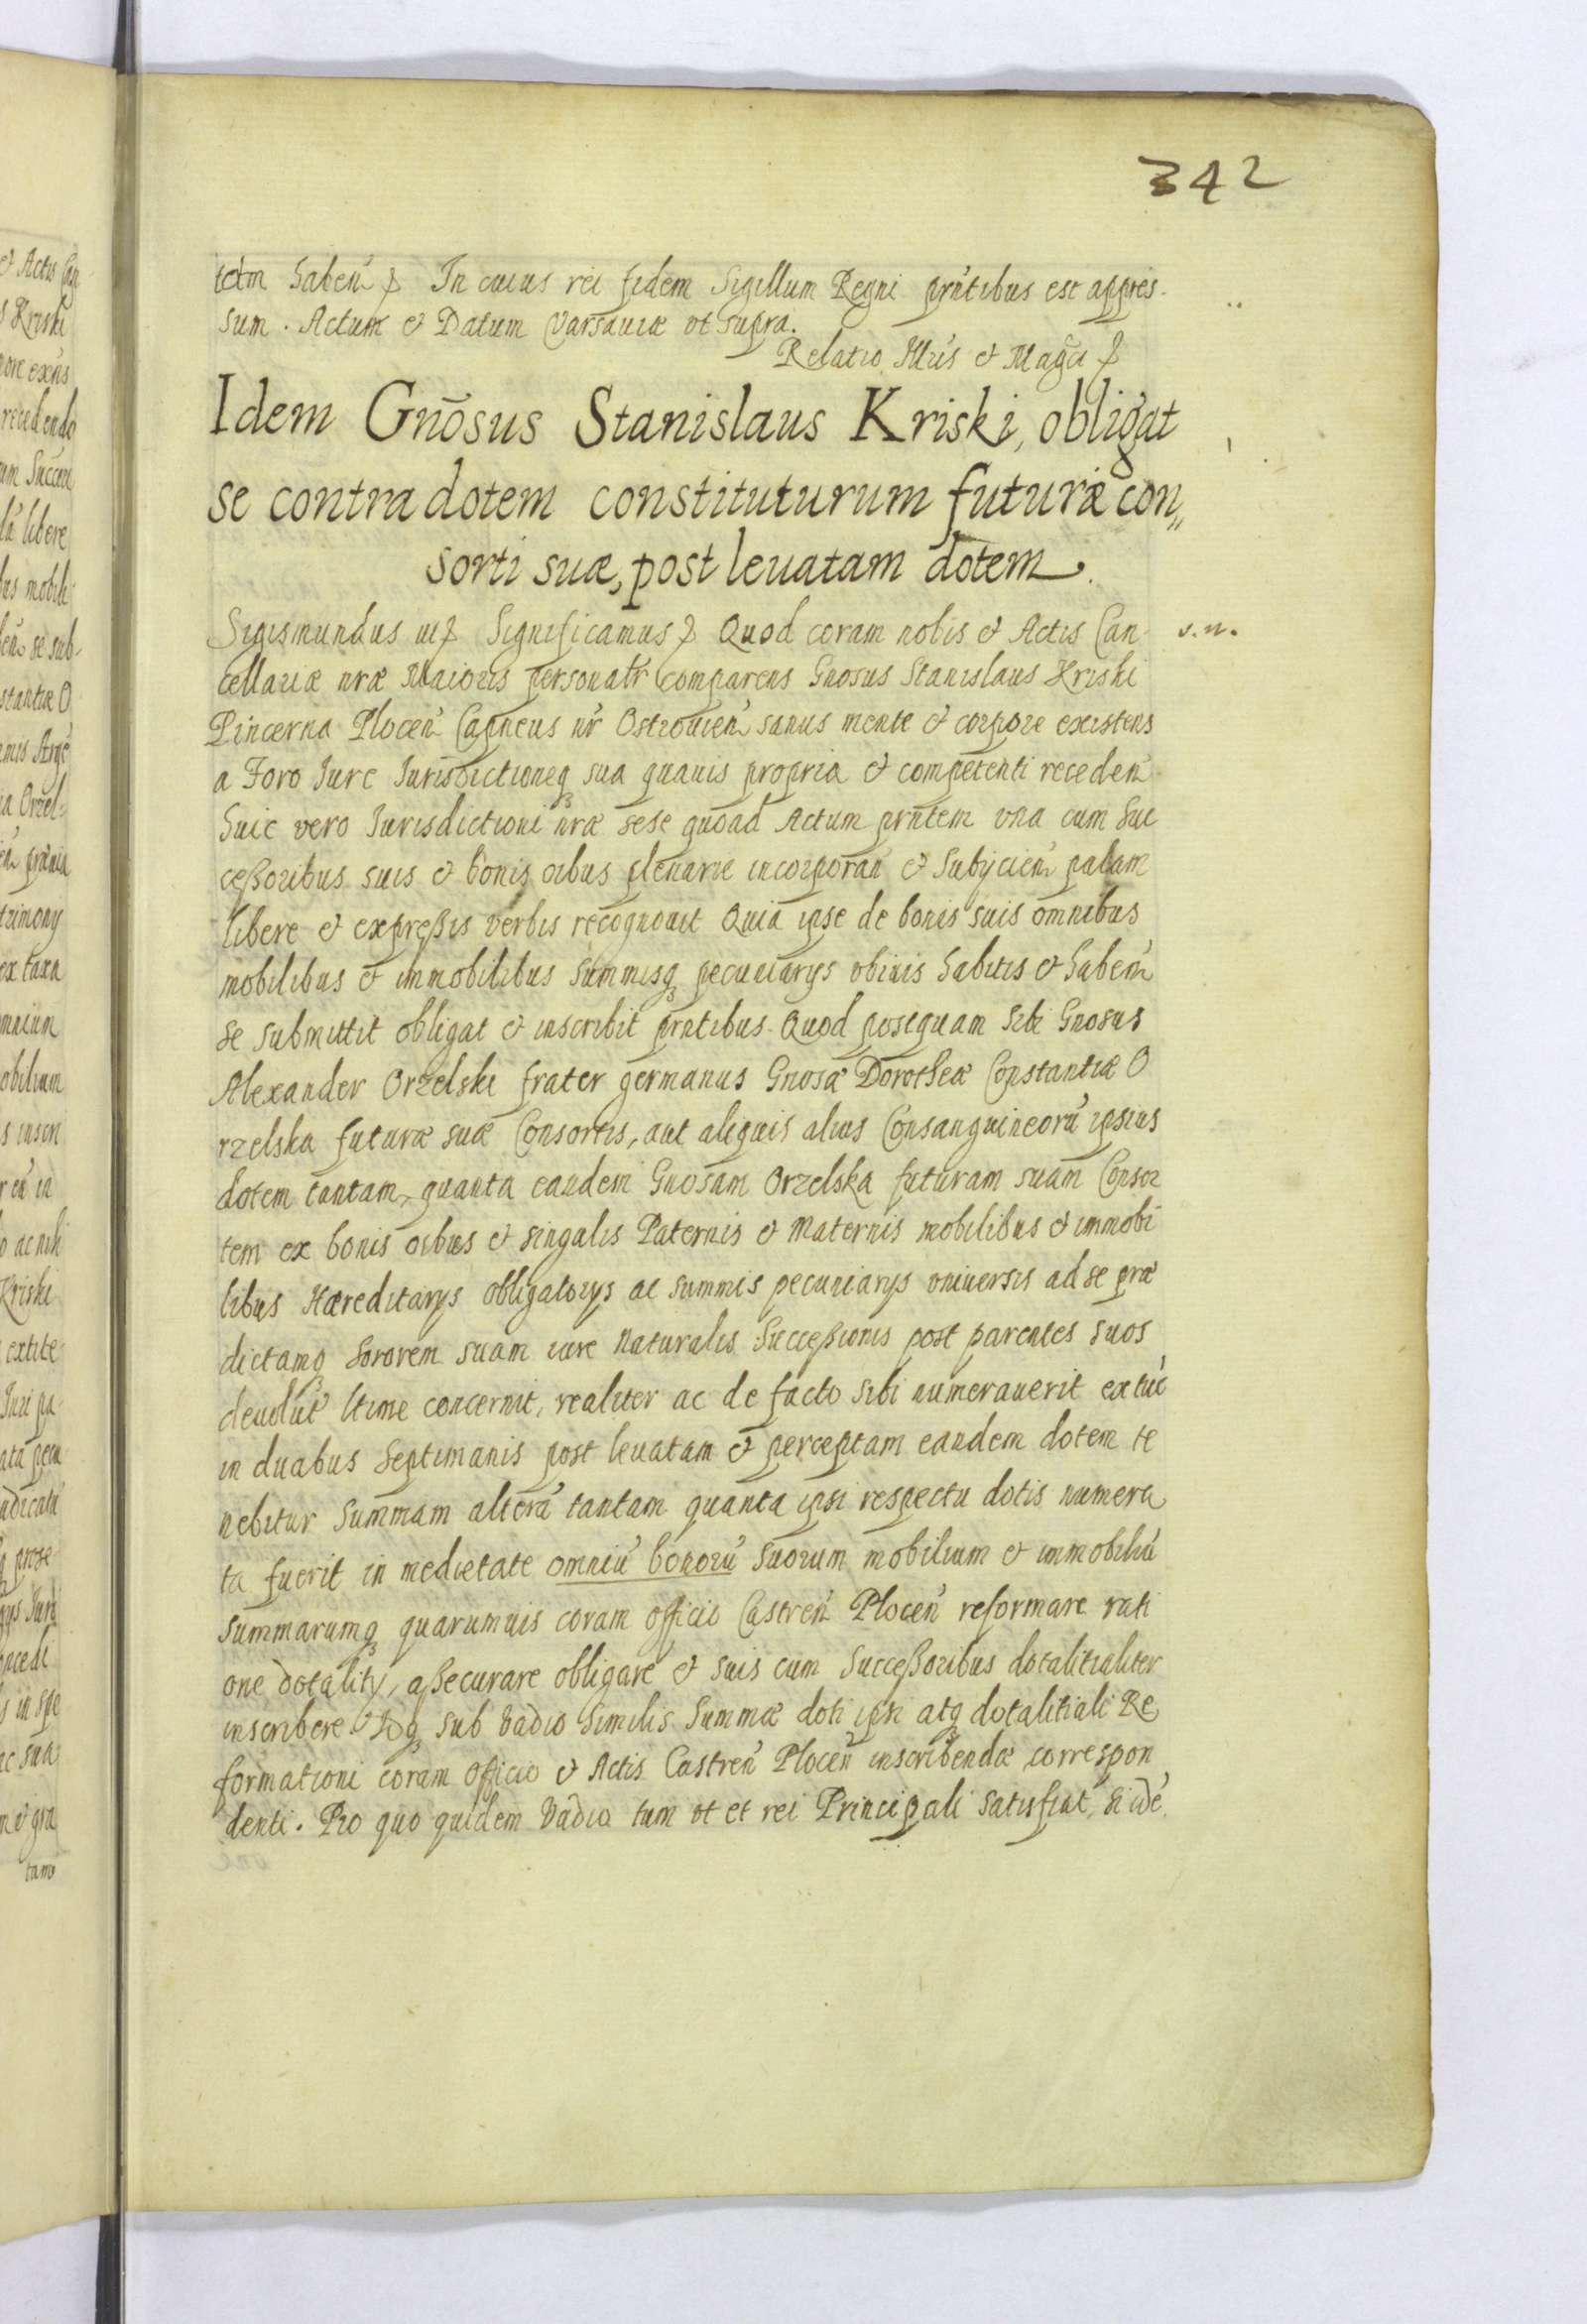 342
Haben̄ In cuius rei fidem Sigillum Regni prn̄tibus est appres-
sum. Actum et Datum Varsauiæ vt supra.
Relatio Illr̄is et Mag̃ci
Idem Gnōsus Stanislaus Kriski, obligat
se contra dotem constituturum futuræ con„
sorti suæ, post leuatam dotem.
Sigismundus Significamus Quod coram nobis et Actis Can-
cellariæ nr̄æ Maioris personalr̄ comparens Gnosus Stanislaus Kriski
Pincerna Plocen̄ Capneus nr̄ Ostrouien̄ sanus mente et corpore existens
a Foro Iure Iurisdictioneq̨ sua quauis propria et competenti receden̄
Huic vero Iurisdictioni nr̄æ sese quoad Actum prn̄tem vna cum Suc
ceßoribus suis et bonis oībus plenarie incorporan̄ et Subijcien̄ palam
libere et expreßis verbis recognouit Quia ipse de bonis suis omnibus
mobilibus et immobilibus Summisq̨ pecuniarijs vbiuis habitis et haben̄
se submittit obligat et inscribit prn̄tibus. Quod postquam Sibi Gnosus
Alexander Orzelski frater germanus Gnosæ Dorotheæ Constantiæ O
rzelska futuræ suæ Consortis, aut aliquis alius Consanguineorū ipsius
dotem tantam, quanta eandem Gnosam Orzelska futuram suam Consor
tem ex bonis oībus et singulis Paternis et Maternis mobilibus et immobi
libus Hæreditarijs obligatorijs ac summis pecuniarijs vniuersis ad se præ
dictamq̨ Sororem suam iure naturalis Succeßionis post parentes suos
deuolut̄ ltime concernit, realiter ac de facto sibi numerauerit ex tūc
in duabus Septimanis post leuatam et perceptam eandem dotem te
nebitur Summam alterā tantam quanta ipsi respectu dotis numera
ta fuerit in medietate omniū bonorū suorum mobilium et immobiliū
summarumq̨ quarumuis coram officio Castren̄ Plocen̄ reformare rati
one dotalitij, aßecurare obligare et suis cum Succeßoribus dotalitialiter
inscribere. Idq̨ sub vadio similis Summæ doti ipsi atq̨ dotalitiali Re
formationi coram Officio et Actis Castren̄ Plocen̄ inscribendæ correspon
denti. Pro quo quidem vadio tum vt et rei Principali satisfiat, si idē